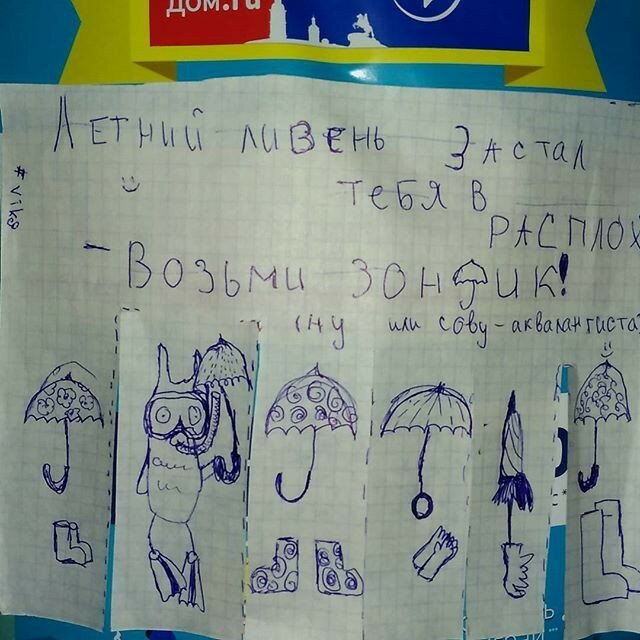 ДОМ.ru
ЛЕТНИЙ ЛИВЕНЬ ЗАСТАЛ
ТЕБЯ В
РАСПЛОХ
- ВОЗЬМИ ЗОНТИК!
(ну или сову-аквалангиста)
#vika